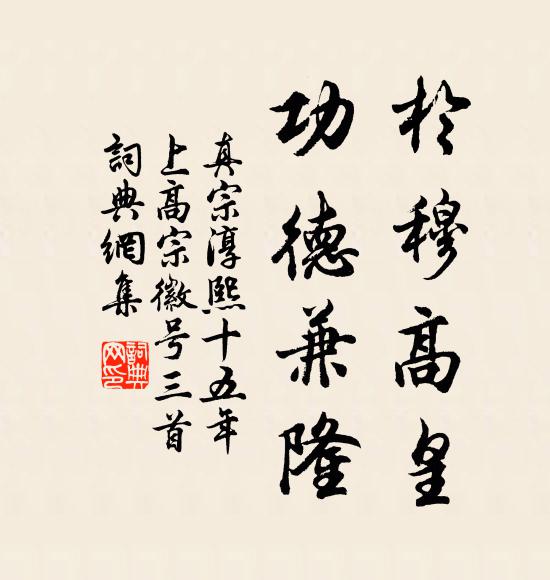 於穆高皇
功德兼隆
真宗淳熙十五年
上高宗徽号三首
詞典網集
詞典網印